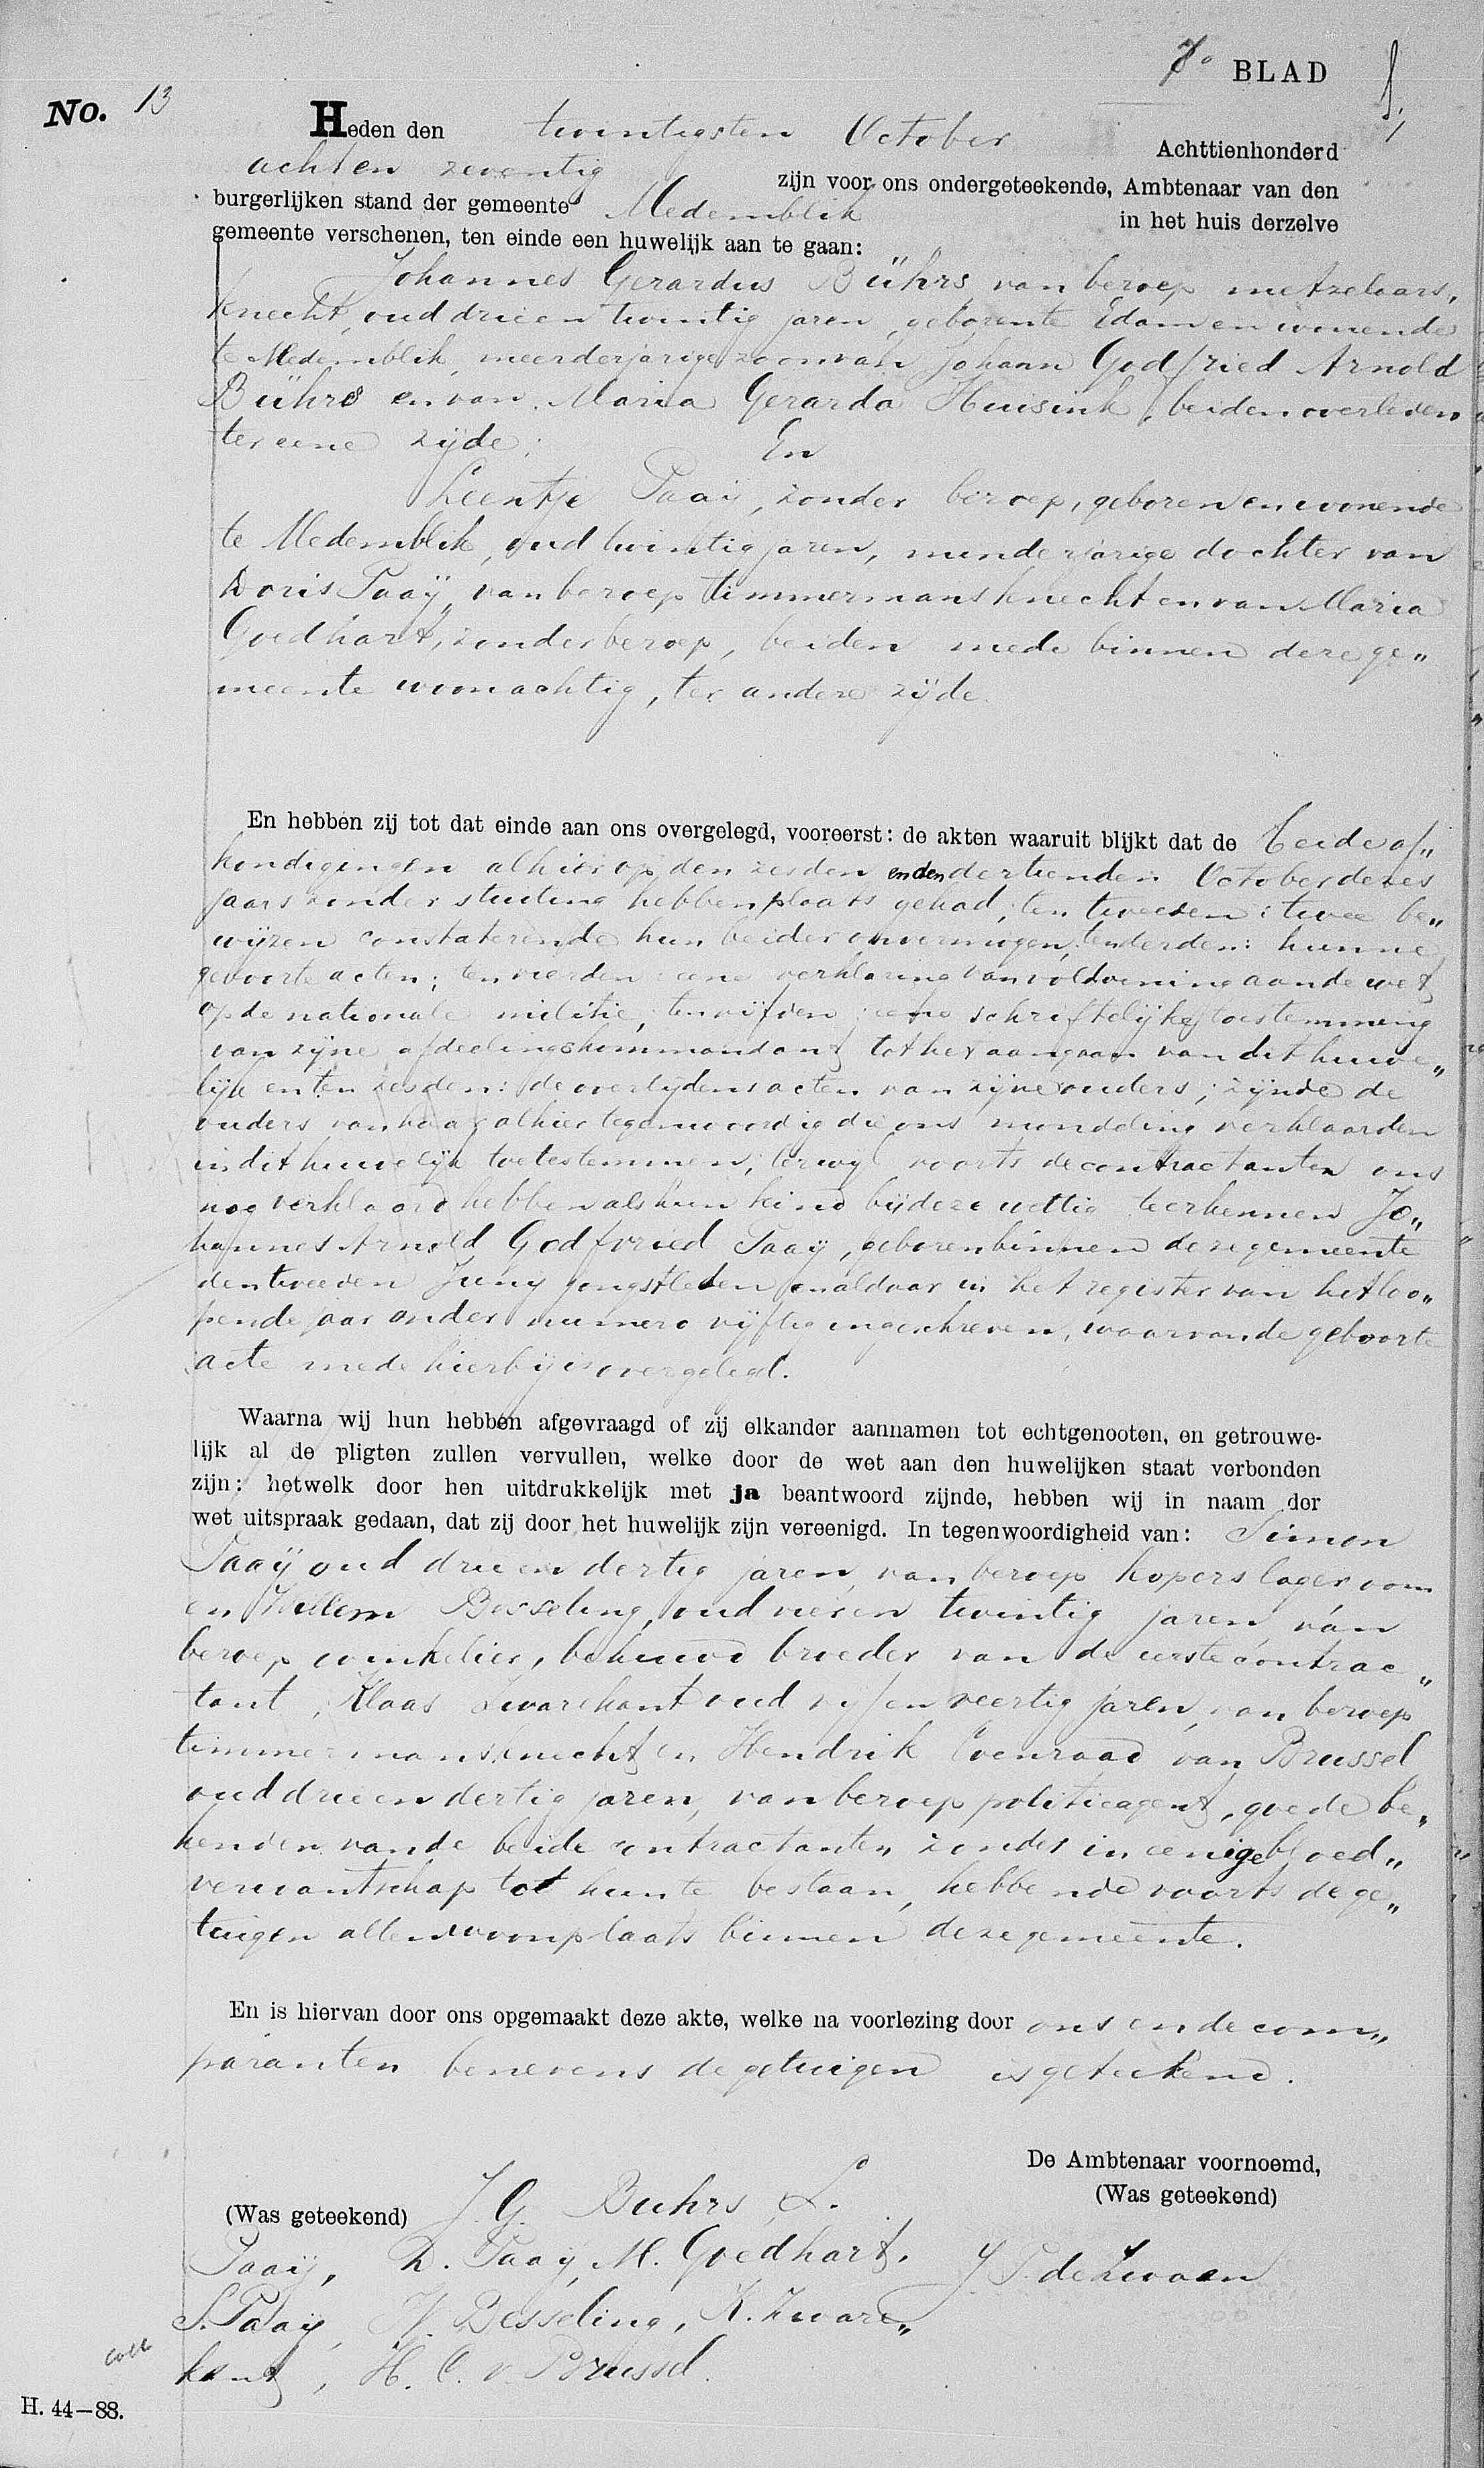 7e BLAD
No. 13
Heden den twintigsten October Achttienhonderd
acht en zeventig zijn voor ons ondergeteekende, Ambtenaar van den
burgerlijken stand der gemeente Medemblik in het huis derzelve
gemeente verschenen, ten einde een huwelijk aan te gaan:
Johannes Gerardus Bührs van beroep metzelaars,
knecht, oud drie en twintig jaren, geboren te Edam en wonende
te Medemblik, meerderjarige zoon van Johann Godfried Arnold
Bührs en van Maria Gerarda Huisink, beiden overleden
ter eene zijde;
En
Leentje Paaij, zonder beroep, geboren en wonende
te Medemblik, oud twintig jaren, minderjarige dochter van
Doris Paaij, van beroep timmermansknecht en van Maria
Goedhart, zonder beroep, beiden mede binnen deze ge„
meente woonachtig, ter andere zijde.
En hebben zij tot dat einde aan ons overgelegd, vooreerst: de akten waaruit blijkt dat de beide af„
kondigingen alhier op den zesden en den dertienden October dezes
jaars zonder stuiting hebben plaats gehad; ten tweeden: twee be„
wijzen constaterende hun beider onvermogen; ten derden: hunne
geboorte acten; ten vierden: eene verklaring van voldoening aan de wet
op de nationale militie; ten vijfden: eene schriftelijke toestemming
van zijne afdeelingskommandant tot het aangaan van dit huwe„
lijk en ten zesden: de overlijdens acten van zijne ouders; zijnde de
ouders van haar alhier tegenwoordig die ons mondeling verklaarden
in dit huwelijk toetestemmen; terwijl voorts de contractanten ons
nog verklaard hebben als hun kind bij deze wettig te erkennen Jo„
hannes Arnold Godfried Paaij, geboren binnen deze gemeente
den tweeden Juny jongstleden en aldaar in het register van het loo„
pende jaar onder numero vijftig ingeschreven, waarvan de geboorte
acte mede hierbij is overgelegd.
Waarna wij hun hebben afgevraagd of zij elkander aannamen tot echtgenooten, en getrouwe-
lijk al de pligten zullen vervullen, welke door de wet aan den huwelijken staat verbonden
zijn: hetwelk door hen uitdrukkelijk met ja beantwoord zijnde, hebben wij in naam der
wet uitspraak gedaan, dat zij door het huwelijk zijn vereenigd. In tegenwoordigheid van: Simon
Paaij oud drie en dertig jaren, van beroep koperslager, oom
en Willem Besseling, oud vier en twintig jaren, van
beroep winkelier, behuwd broeder van de eerste contrac„
tant, Klaas Zwarekant oud vijf en veertig jaren, van beroep
timmermansknecht en Hendrik Coenraad van Brussel
oud drie en dertig jaren, van beroep politieagent, goede be„
kenden van de beide contractanten zonder in eenige bloed„
verwantschap tot hun te bestaan, hebbende voorts de ge„
tuigen allen woonplaats binnen deze gemeente.
En is hiervan door ons opgemaakt deze akte, welke na voorlezing door ons en de com„
paranten benevens de getuigen is geteekend.
De Ambtenaar voornoemd,
(Was geteekend)
(Was geteekend) J. G. Buhrs, L.
Paaij, D. Paaij, M. Goedhart, J. P. de Zwaan
S. Paaij, W. Besseling, K. Zware„
kant, H. C. v. Brussel.
Coll
H. 44–88.